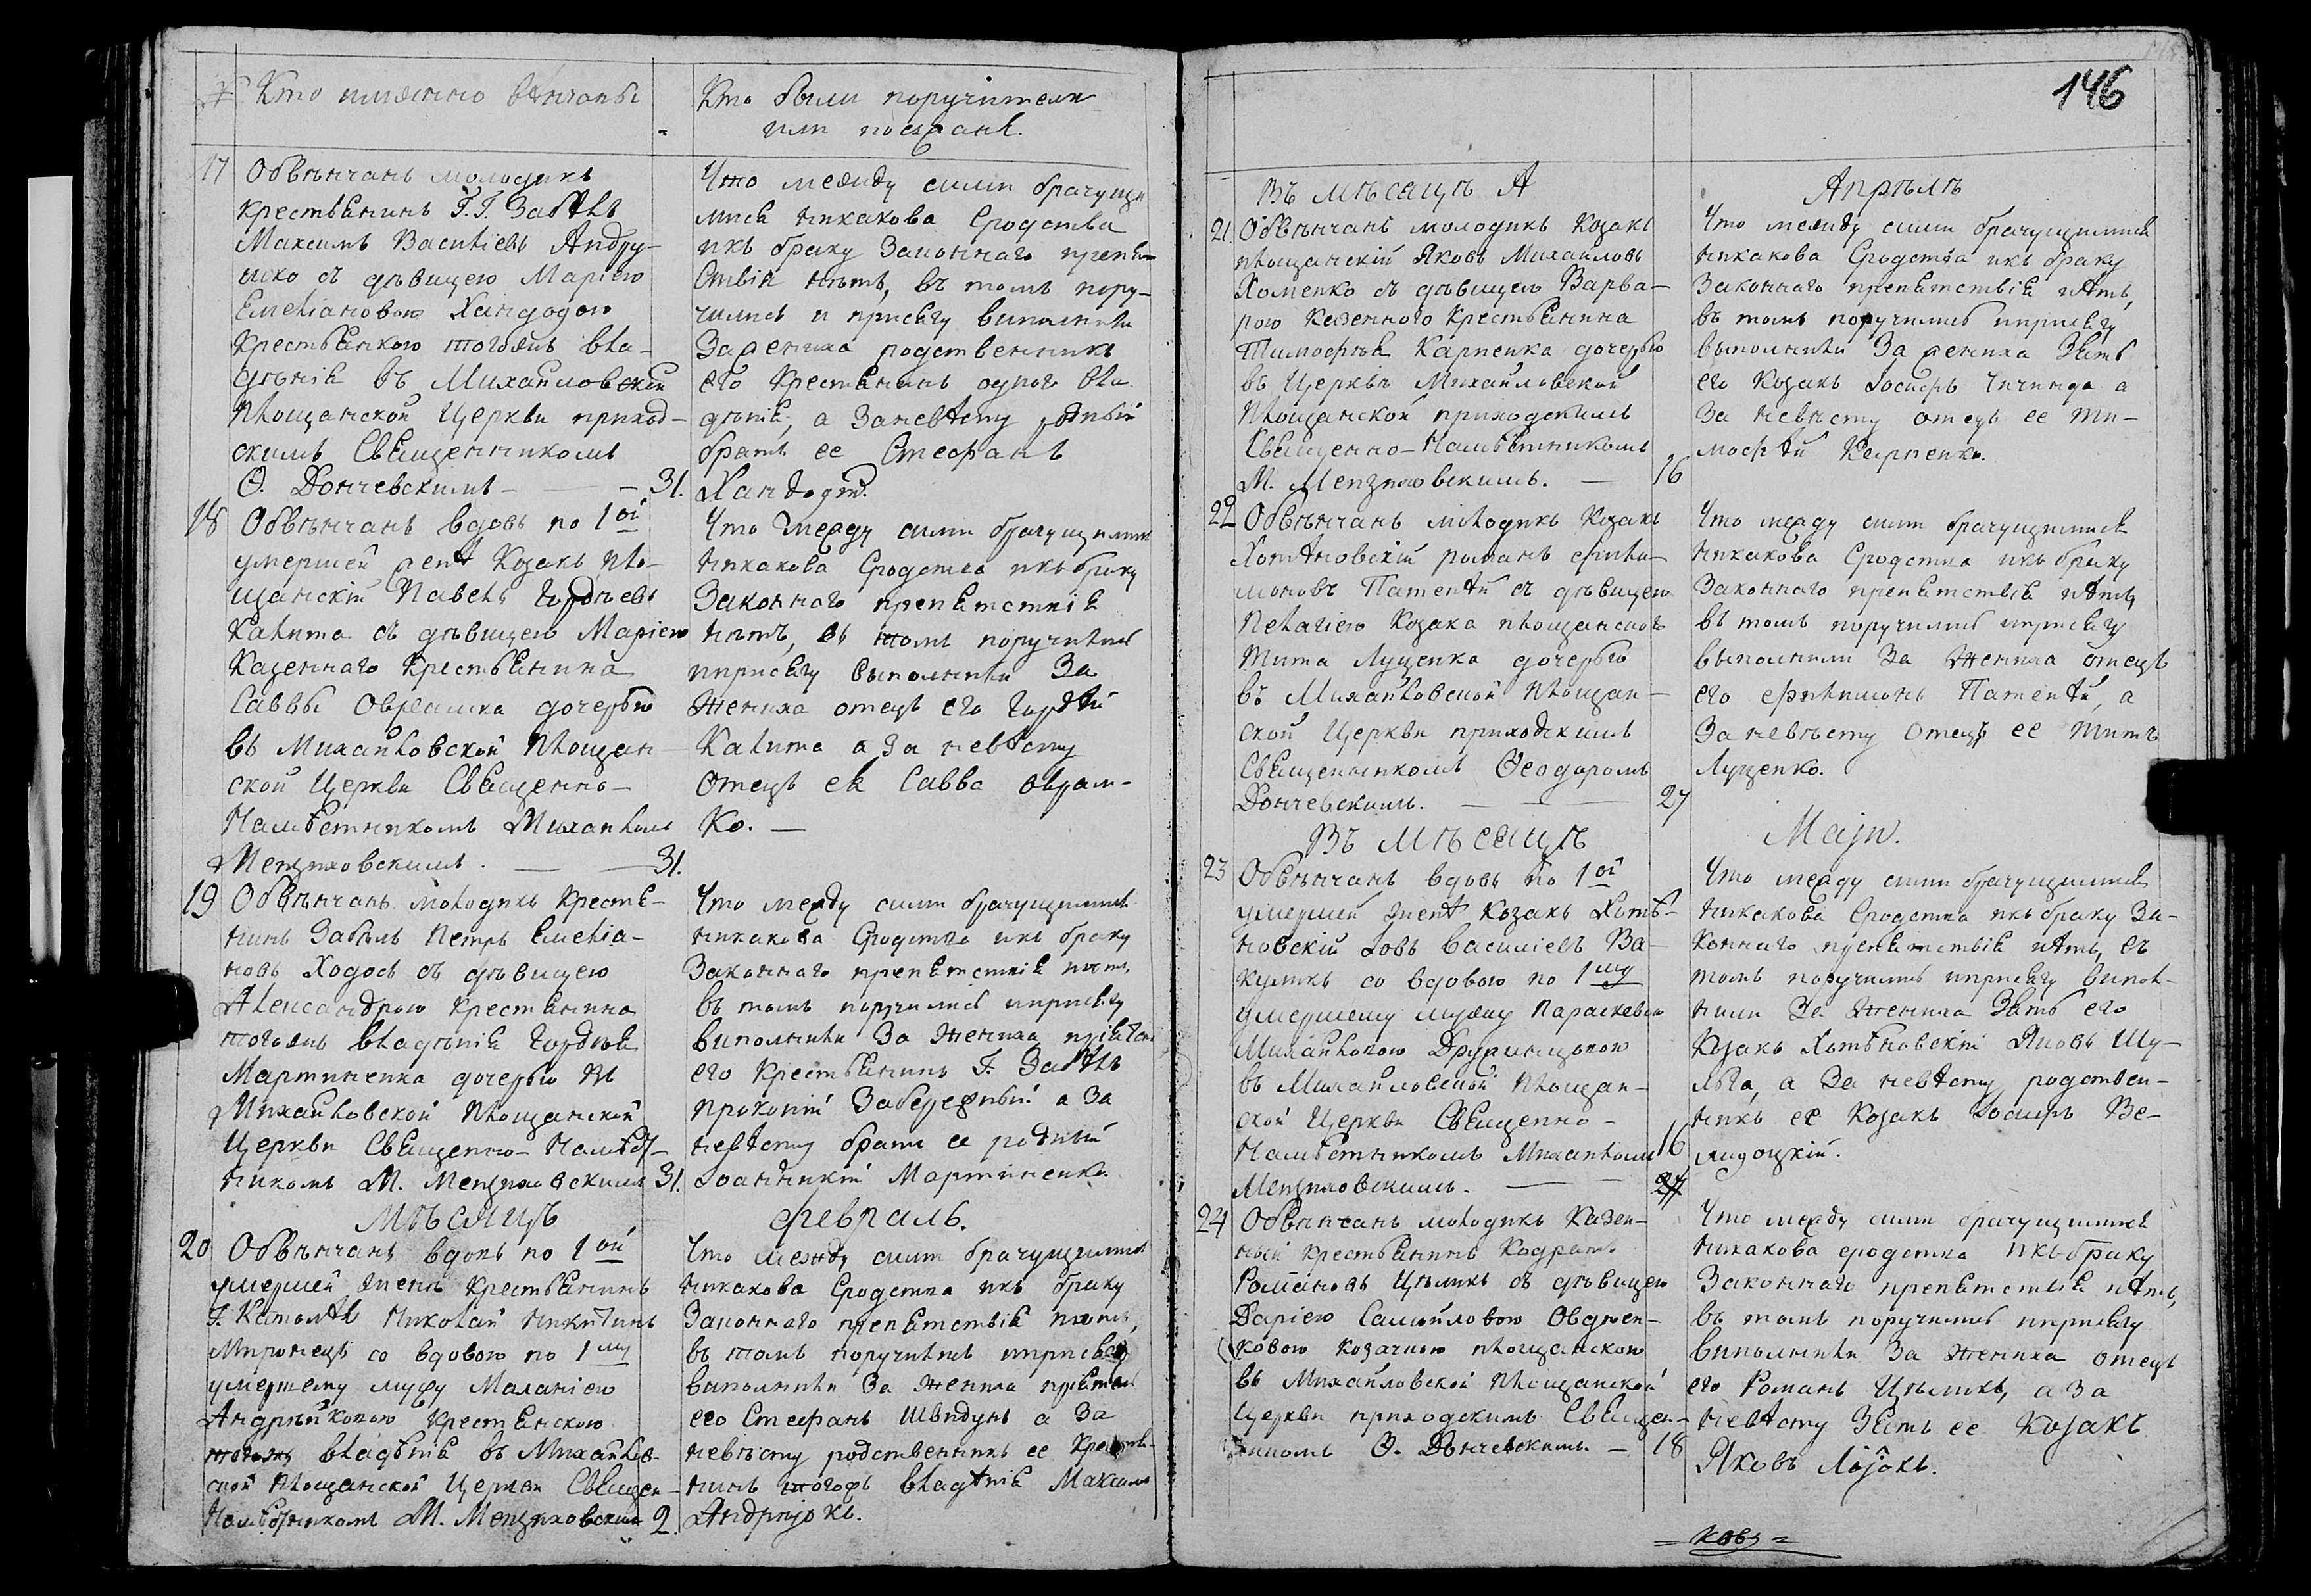 № Кто именно вѣнчаны
Кто были поручители
или посяганѣ.
17 Обвѣнчанъ молодикъ
крестьянинъ Г.Г. Забѣлъ
Максимъ Василіевъ Андру-
шко съ дѣвицею Маріею
Емеліановою Хандодою
крестьянкою тогожъ вла-
дѣнія въ Михайловской
Площанской Церкви приход-
скимъ Священникомъ
Ѳ. Дончевскимъ — 31.
Что между сими брачущи
мися никакова Сродства
икъ браку Законнаго препят-
ствія нѣтъ, въ томъ пору-
чились и присягу выполнили
За жениха родственникъ
его Крестянинъ одного вла
дѣнія, а Заневѣсту родный
братъ ее Стефанъ
Хандода.
18 Обвѣнчанъ вдовъ по 1ой
умершей женѣ Козакъ Пло-
щанскій Павелъ Гордѣевъ
Калита съ дѣвицею Маріею
Казеннаго Крестьянина
Саввы Оврамка дочерью
въ Михайловской Площан-
ской Церкви Священно-
Намѣстникомъ Михаиломъ
Менжиховскимъ. — 31.
Что между сими брачущимися
никакова Сродства икъ браку
Законнаго препятствія
нѣтъ, въ томъ поручились
иприсягу выполнили За
Жениха отецъ его Гордѣй
Калита а За невѣсту
Отецъ ея Савва Оврам-
ко. —
19 Обвѣнчанъ молодикъ Крестя-
нинъ Забѣлъ Петръ Емеліа-
новъ Ходосъ съ дѣвицею
Александрою Крестянина
тогожъ владѣнія Гордѣя
Мартиненка дочерью въ
Михайловской Площанской
Церкви Священно-Намѣст-
никомъ М. Менжиховскимъ 31.
Что между сими брачущимися
никакова Сродства икъ браку
Законнаго препятствія нѣтъ,
въ томъ поручились иприсягу
виполнили За Жениха пріятель
его крестьянинъ Г. Забѣлъ
Прокопій Забережный а За
невѣсту братъ ее родный
Іоанникій Мартиненко.
Мѣсяцъ Февраль.
20 Обвѣнчанъ вдовъ по 1ой
умершей женѣ крестьянинъ
Николай Никитинъ
Миронецъ со вдовою по 1му
умершему мужу Маланіею
Андрѣйковою Крестянскою
тогожъ владѣнія въ Михайлов-
ской Площанской Церкви Священ-
Намѣстникомъ М. Менжиховскимъ 2.
Что между сими брачущимися
никакова Сродства икъ браку
Законнаго препятствія нѣтъ,
въ томъ поручились иприсягу
виполнили За жениха пріятель
его Стефанъ Швидунъ а За
невѣсту родственникъ ее Крестя-
нинъ тогожъ владѣнія Максимъ
146
Въ мѣсяцѣ А Апрѣлѣ
21. Обвѣнчанъ молодикъ Козакъ
Площанскій Яковъ Михайловъ
Хоменко съ дѣвицею Варва-
рою Казенного Крестьянина
Тимофѣя Карпенка дочерью
въ Церкви Михайловской
Площанской приходскимъ
Священно-Намѣстникомъ
М. Менжиховскимъ. — 16
Что между сими брачущимися
никакова Сродства икъ браку
Законнаго препятствія нѣтъ,
въ томъ поручились иприсягу
выполнили За жениха Зять
его Козакъ Іосифъ Чичинда а
За невѣсту отецъ ее Ти-
мофѣй Карпенко.
22 Обвѣнчанъ молодикъ Козакъ
Хотѣновскій романъ Фили-
моновъ Патентѣй съ дѣвицею
Пелагіею Козака площанского
Тита Луценка дочерью
въ Михайловской Площан-
ской Церкви приходскимъ
Священникомъ Ѳеодоромъ
Дончевскимъ. — 27
Что между сими брачущимися
никакова Сродства икъ браку
Законнаго препятствія нѣтъ,
въ томъ поручились иприсягу
выполнили За Жениха отецъ
его Филимонъ Патентѣй, а
За невѣсту Отецъ ее Титъ
Луценко.
Въ мѣсяцѣ Маіи.
23 Обвѣнчанъ вдовъ по 1ой
умершей женѣ Козакъ Хотѣ-
новскій Іовъ Василіевъ Ва-
куликъ со вдовою по 1му
умершему мужу Параскевою
Михайловою
въ Михайловской Площан-
ской Церкви Священно-
Намѣстникомъ Михаиломъ 16
Менжиховскимъ. — 27
Что между сими брачущимися
никакова Сродства икъ браку За-
коннаго препятствія нѣтъ, въ
томъ поручились иприсягу випол-
нили За Жениха Зять его
Козакъ Хотѣновскій Яковъ Шу-
льга, а За невѣсту родствен-
никъ ее Козакъ Іосифъ Ве-
24 Обвѣнчанъ молодикъ Казен-
ный крестьянинъ Кодратъ
Романовъ Цѣликъ съ дѣвицею
Даріею Самойловою Овдѣен-
ковою козачкою площанскою
въ Михайловской Площанской
Церкви приходскимъ Священ-
никомъ Ѳ. Дончевскимъ. — 18
Что между сими брачущимися
никакова сродства икъ браку
Законнаго препятствія нѣтъ,
въ томъ поручились иприсягу
виполнили За жениха отецъ
его Романъ Цѣликъ, а За
невѣсту Зять ее Козакъ
Яковъ